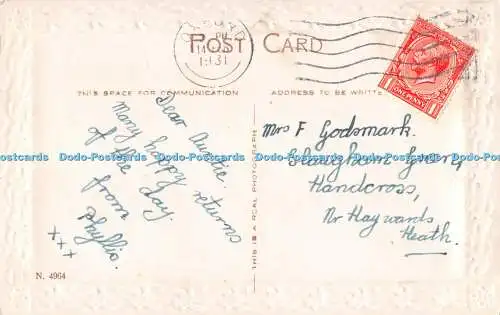 POST CARD
PM
14
1931
ONE PENNY
THIS SPACE FOR COMMUNICATION
ADDRESS TO BE WRITTE
Dear Auntie.
Many happy returns
of the day.
from
Phyllis.
xxx
THIS IS A REAL PHOTOGRAPH
Mrs F Godsmark.
Slaugham Green,
Handcross,
Nr Haywards
Heath.
N. 4964
Dodo-Postcards Dodo-Postcards Dodo-Postcards Dodo-Postcards